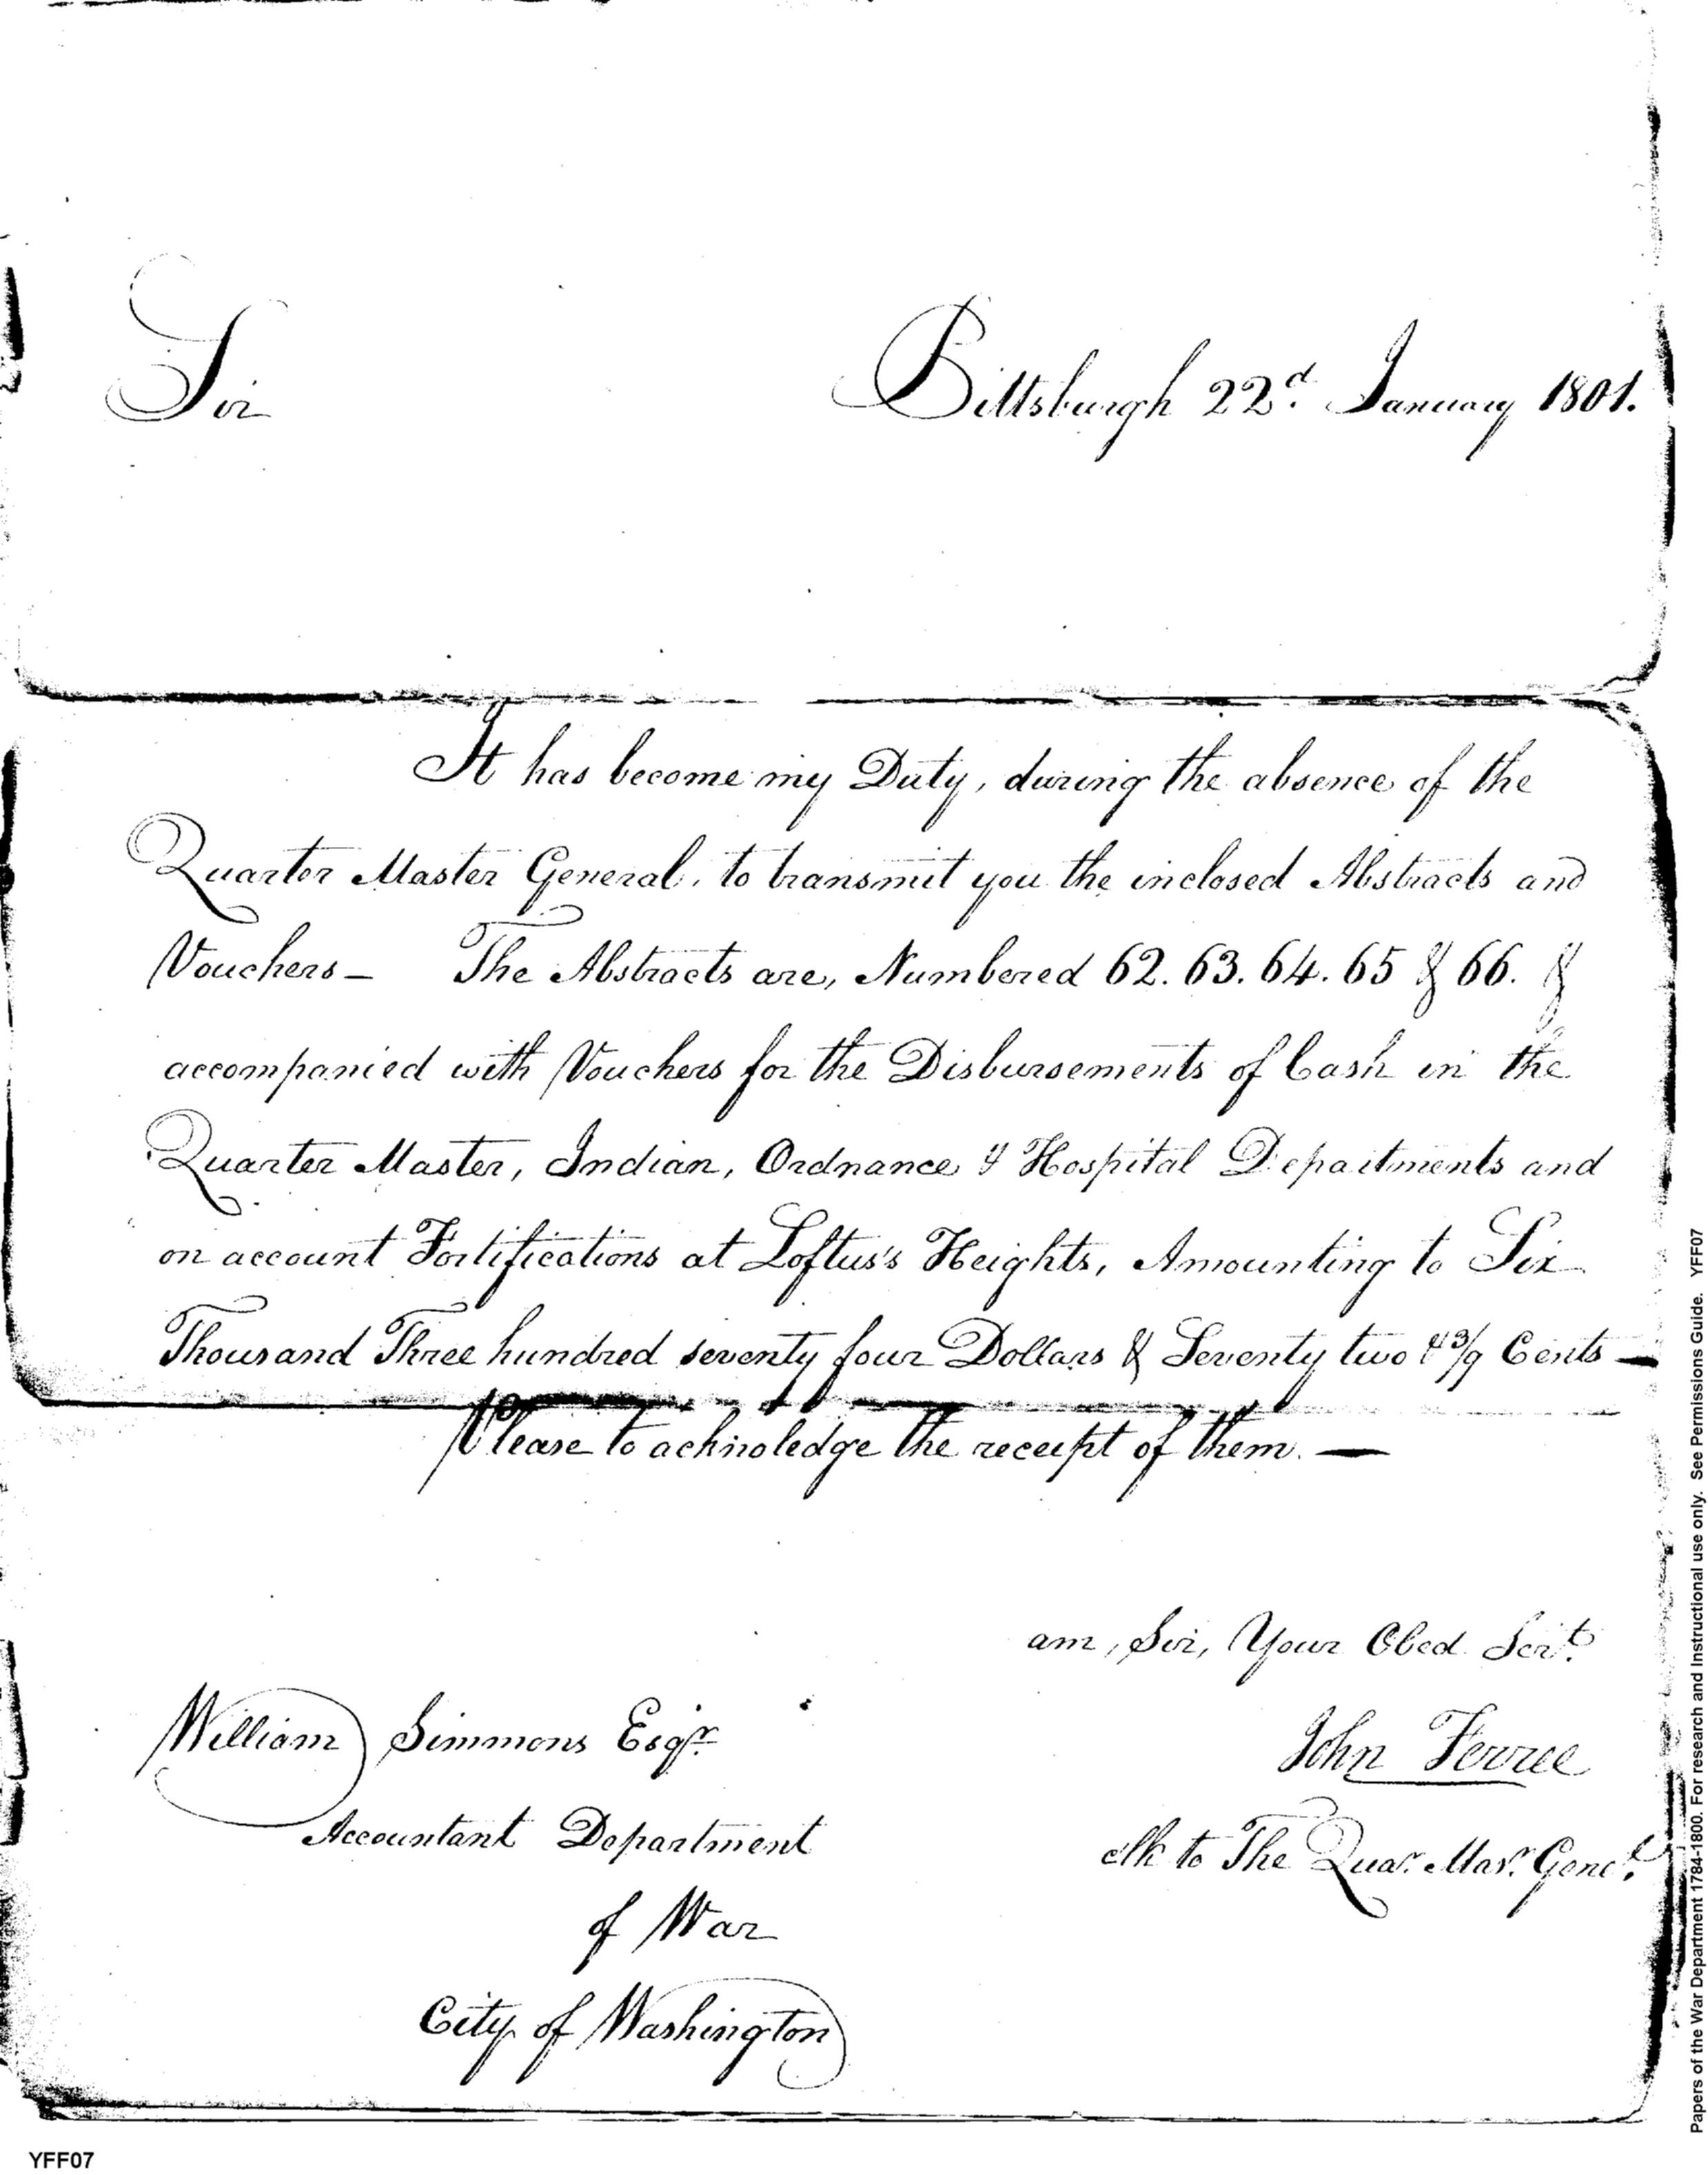 Sir
Pittsburgh 22d. January 1801.
It has become my Duty, during the absence of the
Quarter Master General, to transmit you the inclosed Abstracts and
Vouchers — The Abstracts are, Numbered 62. 63. 64. 65 & 66. &
accompanied with Vouchers for the Disbursements of Cash in the
Quarter Master, Indian, Ordnance & Hospital Departments and
on account Fortifications at Loftus's Heights, Amounting to Six
Thousand Three hundred seventy four Dollars & Seventy two & 3/9 Cents —
Please to acknoledge the receipt of them. —
am, Sir, Your Obed Servt.
William Simmons Esqr.
John Ferree
Accountant Department
clk to The Quar. Masr. Genel.
of War
City of Washington
YFF07
Papers of the War Department 1784-1800. For research and Instructional use only. See Permissions Guide. YFF07